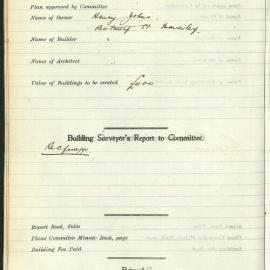 Plan approved by Committee
Name of Owner Henry Johns
St Waverley
Name of Builder "
Name of Architect "
Value of Buildings to be erected £400
Building Surveyor's Report to Committee
Report Book, Folio
Plans Committee Minute Book, page
Building Fee Paid